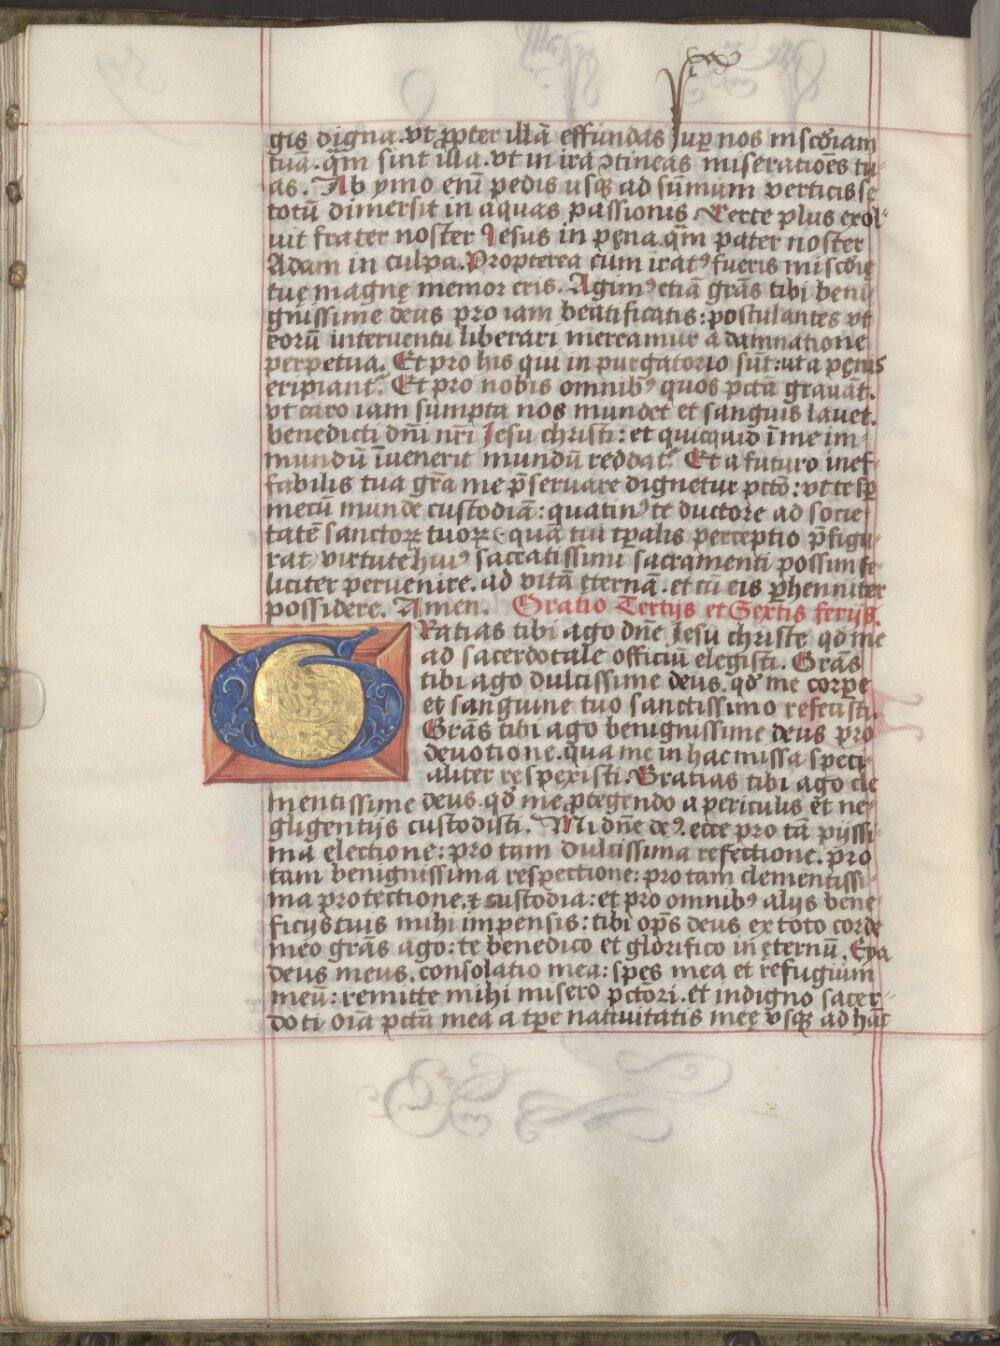 gis digna. vt ꝓpter illā effundas suꝑ nos mīscd̄iam
tuā. qm̄ sint illa. vt in ira ↄtineas miseratiōes tu-
as. Ab ymo enī pedis usqꝫ ad sūmum verticis se
totū dimersit in aquas passionis. Certe plus exol-
uit frater noster Jesus in pęna. qm̄ pater noster
Adam in culpa. Propterea cum iratꝰ fueris misc̄dię
tuę magnę memor eris. Agimꝰ etiā grās tibi beni
gnissime deus pro iam beatificatis: postulantes vt
eorū interuentu liberari mereamur a damnatione
perpetua. Et pro his qui in purgatorio sūt: ut a pęnis
eripiant᷑. Et pro nobis omnibꝰ quos pctā grauāt.
vt caro iam sumpta nos mundet et sanguis lauet.
benedicti dn̄i nr̄i Jesu christi: et quicquid ī me im-
mundū īuenerit mundū reddat᷑. Et a futuro inef-
fabilis tua grā me p̄seruare dignetur pctō: vt te sꝑ
mecū munde custodiā: quatinꝰ te ductore ad socie
tatē sanctoꝝ tuoꝝ: quā tui tꝑalis perceptio p̄figu-
rat virtute huiꝰ sacratissimi sacramenti possim fe-
liciter peruenire. ad vitā ęternā. et cū eis ꝑhenniter
possidere. Amen. Oratio Tertijs et Sextis ferijs.
GRatias tibi ago dn̄e Jesu christe qd̄ me
ad sacerdotale officiū elegisti. Grās
tibi ago dulcissime deus. qd̄ me corpe
et sanguine tuo sanctissimo refecisti.
Grās tibi ago benignissime deus pro
deuotione. qua me in hac missa speci-
aliter respexisti. Gratias tibi ago cle
mentissime deus. qd̄ me ꝓtegendo a periculis et ne-
gligentijs custodisti. Mi dn̄e deꝰ. ecce pro tā pijssi-
ma electione: pro tam dulcissima refectione. pro
tam benignissima respectione: pro tam clementissi-
ma protectione. et custodia: et pro omnibꝰ alijs bene
ficijs tuis mihi impensis: tibi op̄s deus ex toto corde
meo grās ago: te benedico et glorifico in ęternū. Eya
deus meus. consolatio mea: spes mea et refugium
meū: remitte mihi misero pctōri. et indigno sacer-
doti oīa pctā mea a tꝑe natiuitatis meę vsqꝫ ad hāc